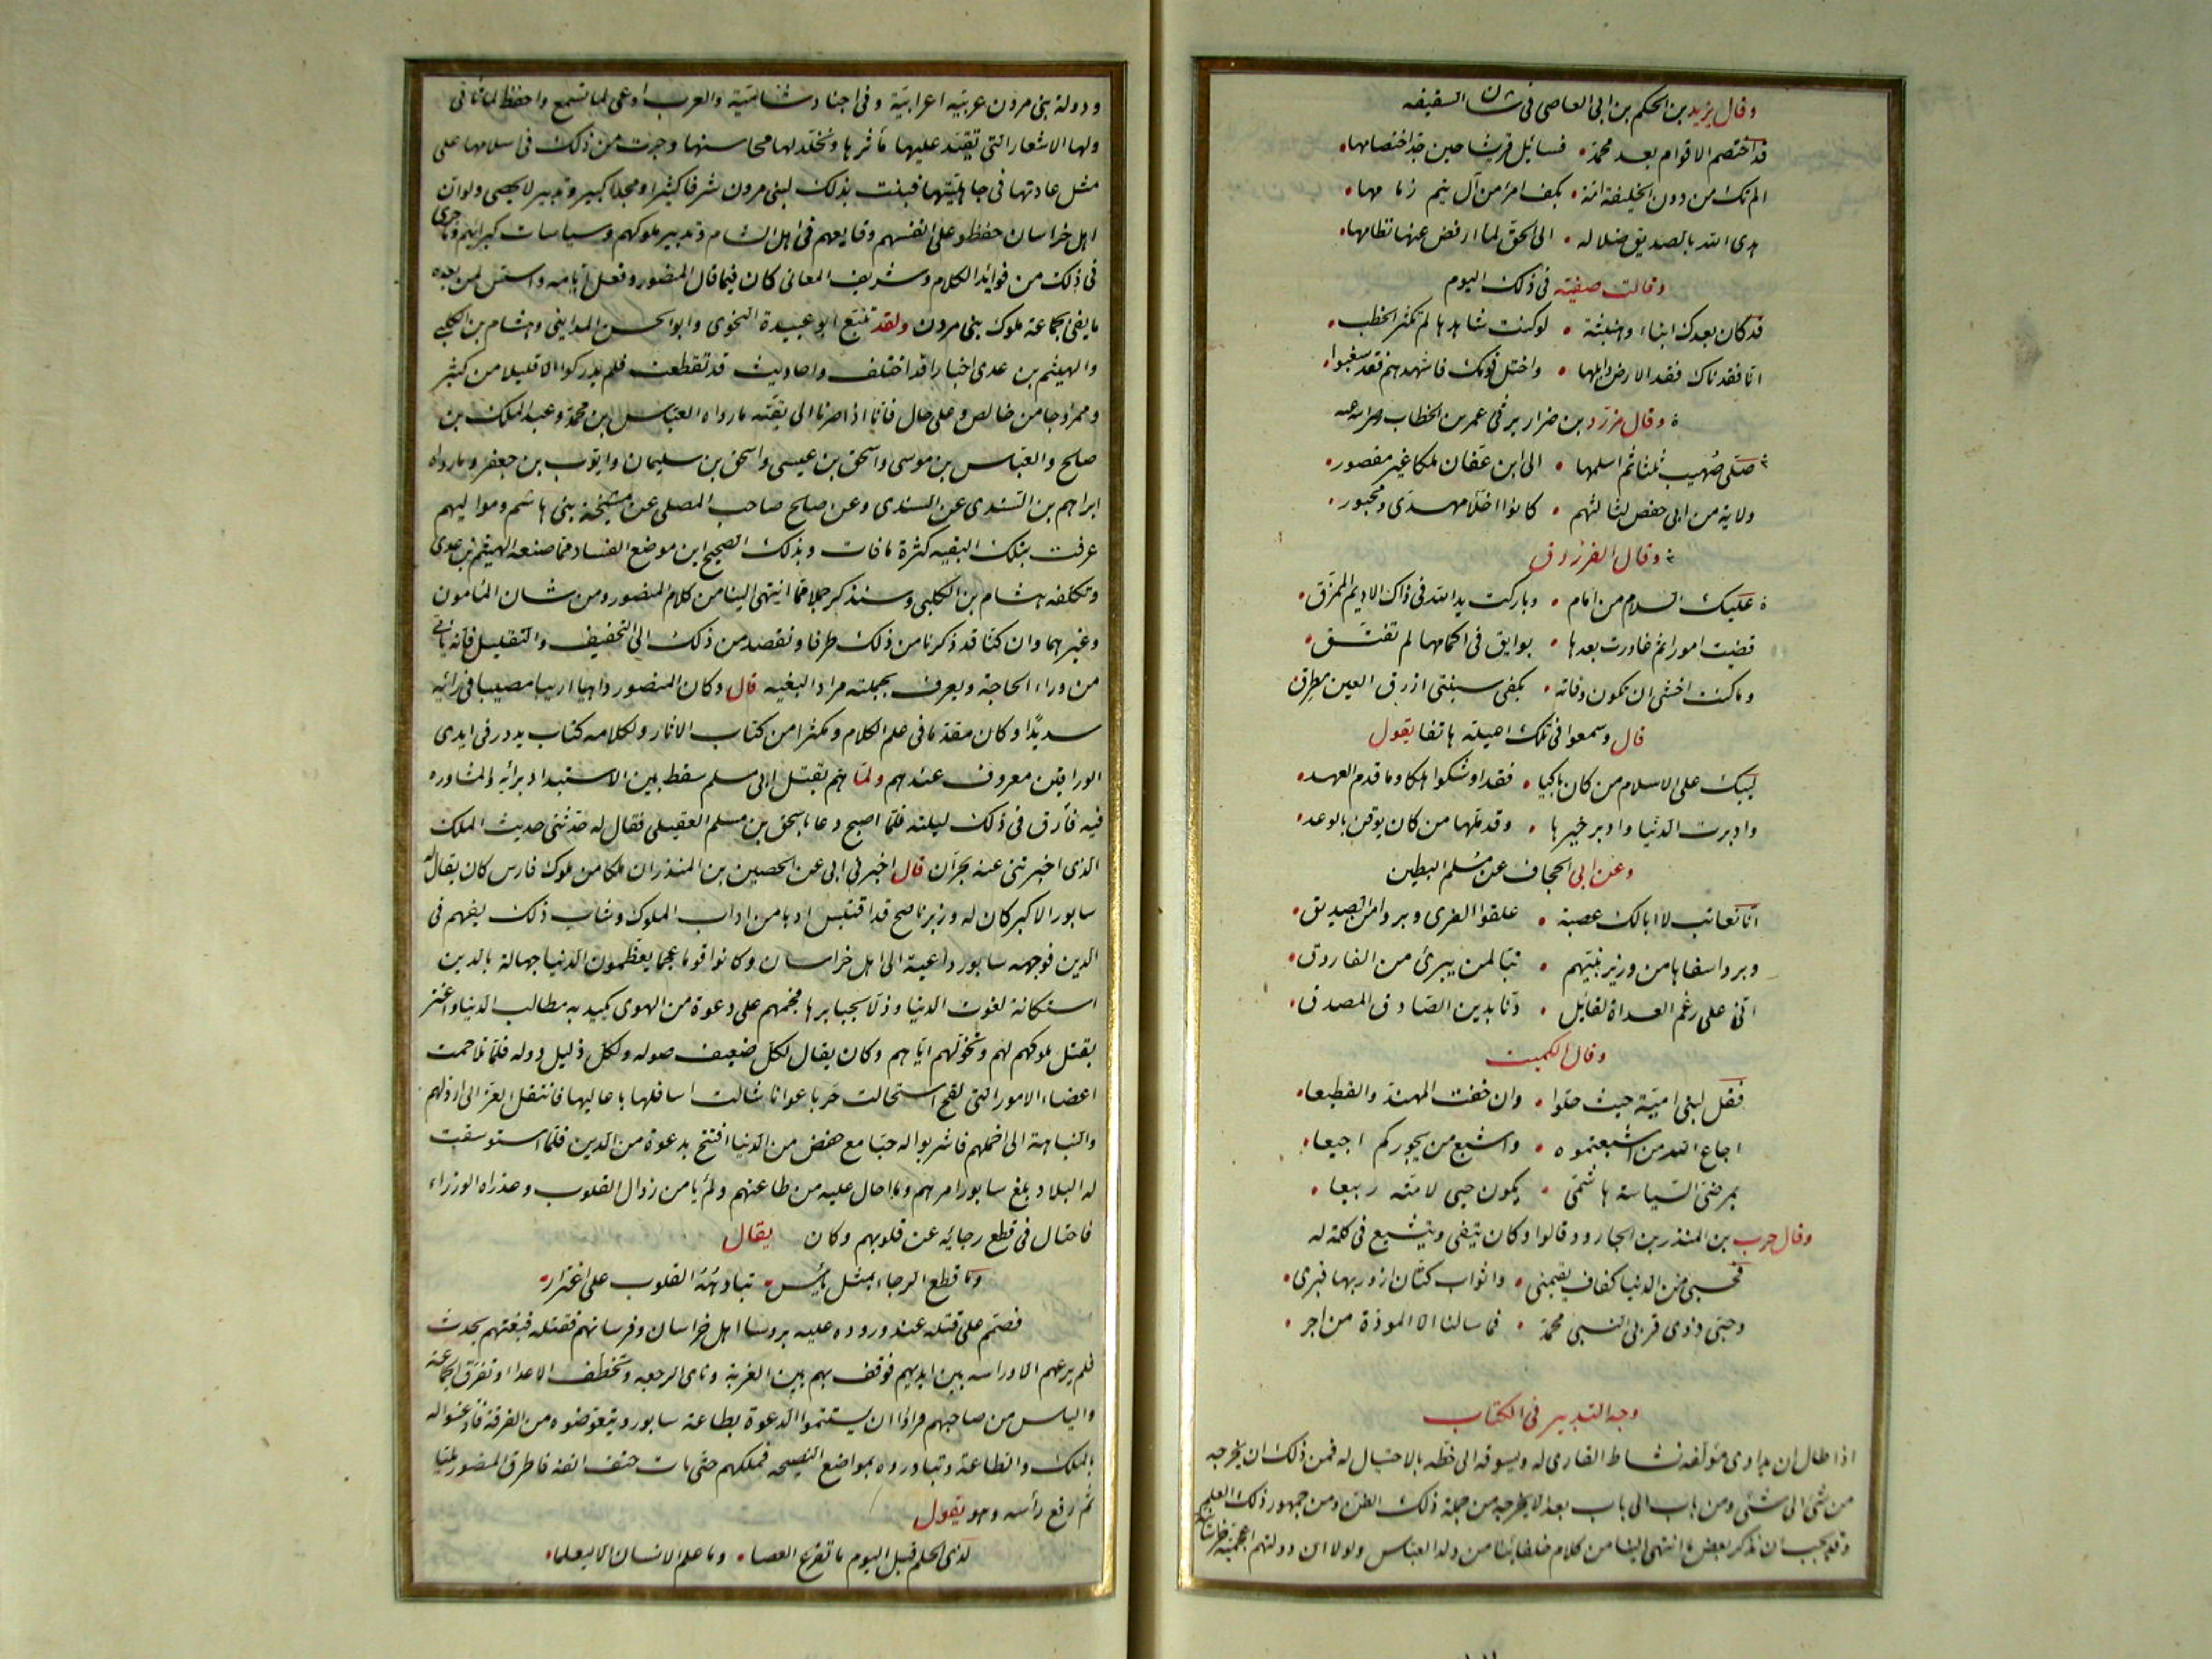 وقال يزيد بن الحكم بن ابى العاصى فى شان السقيفه
قد اختصم الاقوام بعد محمد • فسائل قريشا حين جد اختصامها •
الم تك من دون الخليفة امة • بكف امرئ من آل تيم زمامها •
هدى الله بالصديق ضلاله • الى الحق لما ارفض عنها نظامها •
وقالت صفية فى ذلك اليوم
قد كان بعدك انباء وهنبثة • لو كنت شاهدها لم تكثر الخطب •
انا فقدناك فقد الارض وابلها • واختل قومك فاشهدهم فقد سغبوا •
وقال مزرد بن ضرار يرثى عمر بن الخطاب
صلى صهيب ثلثا ثم اسلمها • الى ابن عفان ملكا غير مقصور •
ولاية من ابى حفص لثالثهم • كانوا اخلا مهدى ومحبور •
وقال الفرزدق
عليك السلام من امام • وباركت يد الله فى ذاك الاديم الممزق •
قضيت امورا ثم غادرت بعدها • بوايق فى اكمامها لم تفتق •
وما كنت اخشى ان تكون وفاته • بكفى سبنتى ازرق العين مطرق
قال وسمعوا فى تلك هاتفا يقول
ليبك على الاسلام من كان باكيا • فقد اوشكوا هلكا وما قدم العهد •
وادبرت الدنيا وادبر خيرها • وقد ملها من كان يوقن بالوعد •
وعن ابى الحجاف عن مسلم البطين
انا نعاتب لا ابالك عصبة • علقوا الفرى وبروا من الصديق •
وبروا سفاها من وزير نبيهم • تبا لمن يبرئ من الفاروق •
انى على رغم العداة لقائل • دنا بدين الصادق المصدق •
وقال الكميت
فقل لبنى امية حيث حلوا • وان خفت المهند والقطيعا •
اجاع الله من اشبعتموه • واشبع من بجوركم اجيعا •
بمرضى السياسة هاشمى • يكون حيى لامته ربيعا •
وقال حرب بن المنذر بن الجارود قالوا وكان يتقى ويتشيع فى كلمة له
فحسبى من الدنيا كفاف يقيمنى • واثواب كتان ازور بها قبرى •
وحبى ذوى قربى النبى محمد • فما سالنا الا المودة من اجر •
وجه التدبير فى الكتاب
اذا طال ان يداوى مؤلفه نشاط القارى له ويسوقه الى حظه بالاحتيال له فمن ذلك ان يخرجه
من شئ الى شئ ومن باب الى باب بعد ان لا يخرجه من جملة ذلك الفن ومن جمهور ذلك العلم
وقد يجب ان نذكر بعض ما انتهى الينا من كلام خلفائنا من ولد العباس ولولا ان دولتهم اعجمية خراسانية
ودولة بنى مروان عربية اعرابية وفى اجناد شامية والعرب اوعى لما تسمع واحفظ لما تأتى
ولها الاشعار التى تقيد عليها مآثرها وتخلد لها محاسنها وجرت من ذلك فى اسلامها على
مثل عادتها فى جاهليتها فبنت بذلك لبنى مروان شرفا كثيرا ومجدا كبيرا وتدبيرا لا يحصى ولو ان
اهل خراسان حفظوا على انفسهم وقايعهم فى اهل الشام وتدبير ملوكهم وسياسات كبرائهم وما جرى
فى ذلك من فوائد الكلام وشريف المعانى كان فيما قال المنصور وفعل فى ايامه واسس لمن بعده
ما يفى بجماعة ملوك بنى مروان ولقد تتبع ابو عبيدة النحوى وابو الحسن المداينى وهشام بن الكلبى
والهيثم بن عدى اخبارا قد اختلف واحاديث قد تقطعت فلم يدركوا الا قليلا من كثير
وممزوجا من خالص وعلى حال فانا اذا صرنا الى بقية ما رواه العباس بن محمد وعبد الملك بن
صلح والعباس بن موسى واسحق بن عيسى واسحق بن سليمان وايوب بن جعفر وما رواه
ابراهيم بن السندى عن السندى وعن صلح صاحب المصلى عن مشيخة بنى هاشم ومواليهم
عرفت بتلك البقيه كثرة ما فات وبذلك الصحيح اين موضع الفساد مما صنعه الهيثم بن عدى
وتكلفه هشام بن الكلبى وسنذكر جملا مما انتهى الينا من كلام المنصور ومن شان المأمون
وغيرهما وان كنا قد ذكرنا من ذلك طرفا ونقصد من ذلك الى التخفيف والتقليل فانه ياتى
من وراء الحاجة ويعرف بجملته مراد البغيه قال وكان المنصور داهيا اريبا مصيبا فى رائه
سديدا وكان مقدما فى علم الكلام ومكثرا من كتاب الاثار ولكلامه كتاب يدور فى ايدى
الوراقين معروف عندهم ولما هم بقتل ابى مسلم سقط بين الاستبداد برأيه والمشاوره
فيه فأرق فى ذلك ليلته فلما اصبح دعا باسحق بن مسلم العقيلى فقال له حدثنى حديث الملك
الذى اخبرتنى عنه بحران قال اخبرنى ابى عن الحصين بن المنذر ان ملكا من ملوك فارس كان يقال له
سابور الاكبر كان له وزير ناصح قد اقتبس ادبا من اداب الملوك وشاب ذلك بفهم فى
الدين فوجهه سابور داعية الى اهل خراسان وكانوا قوما عجما يعظمون الدنيا جهالة بالدين
استكانة لقوت الدنيا وذلا لجبابرها فجمعهم على دعوة من الهوى يكيد به مطالب الدنيا واغتر
بقتل ملوكهم لهم وتخولهم اياهم وكان يقال لكل ضعيف صوله ولكل ذليل دوله فلما تلاحمت
اعضاء الامور التى لقح استحالت حربا عوانا شالت اسافلها باعاليها فانتقل العز الى ارذلهم
والنباهة الى اخملهم فاشربوا له حبا مع خفض من الدنيا افتتح بدعوة من الدين فلما استوسقت
له البلاد بلغ سابور امرهم وما احال عليه من طاعتهم ولم يامن زوال القلوب وغدرات الوزراء
فاحتال فى قطع رجائه عن قلوبهم وكان يقال
وما قطع الرجاء بمثل يأس • تبادهه القلوب على اغترار •
فصمم على قتله عند وروده عليه برؤسا اهل خراسان وفرسانهم فقتله فبغتهم بحدث
فلم يرعهم الا وراسه بين ايديهم فوقف بهم بين الغربة ونأى الرجعه وتخطف الاعداء وتفرق الجماعة
والياس من صاحبهم فرأوا ان يستتموا الدعوة بطاعة سابور ويتعوضوه من الفرقة فأذعنوا له
بالملك والطاعة وتبادروه بمواضع النصيحه فملكهم حتى مات حتف انفه فاطرق المنصور مليا
ثم رفع رأسه وهو يقول
لذى الحلم قبل اليوم ما تقرع العصا • وما علم الانسان الا ليعلما •